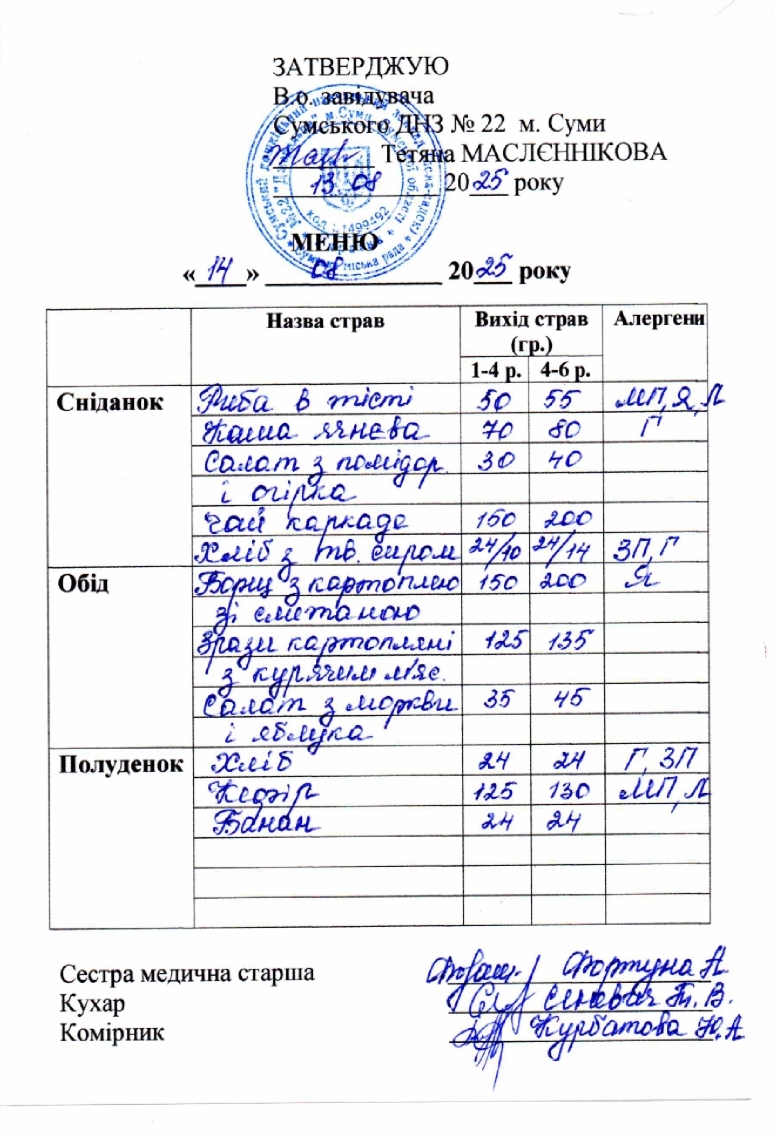 ЗАТВЕРДЖУЮ
В.о. завідувача
Сумського ДНЗ № 22 м. Суми
Тетяна МАСЛЄННІКОВА
13 08 2025 року
МЕНЮ
«14» 08 2025 року
Назва страв Вихід страв (гр.) Алергени
1-4 р. 4-6 р.
Сніданок Риба в тісті 50 55 МП, Я, Л
Каша ячнева 70 80 Г
Салат з помідор. 30 40
і огірка
Чай каркаде 150 200
Хліб з тв. сиром 24/10 24/14 ЗП, Г
Обід Борщ з картоплею 150 200 Я
зі сметаною
Зрази картопляні 125 135
з курячим м'яс.
Салат з моркви 35 45
і яблука
Полуденок Хліб 24 24 Г, ЗП
Кефір 125 130 МП, Л
Банан 24 24
Сестра медична старша Фортуна А
Кухар Т. В.
Комірник Курбатова Ю.А